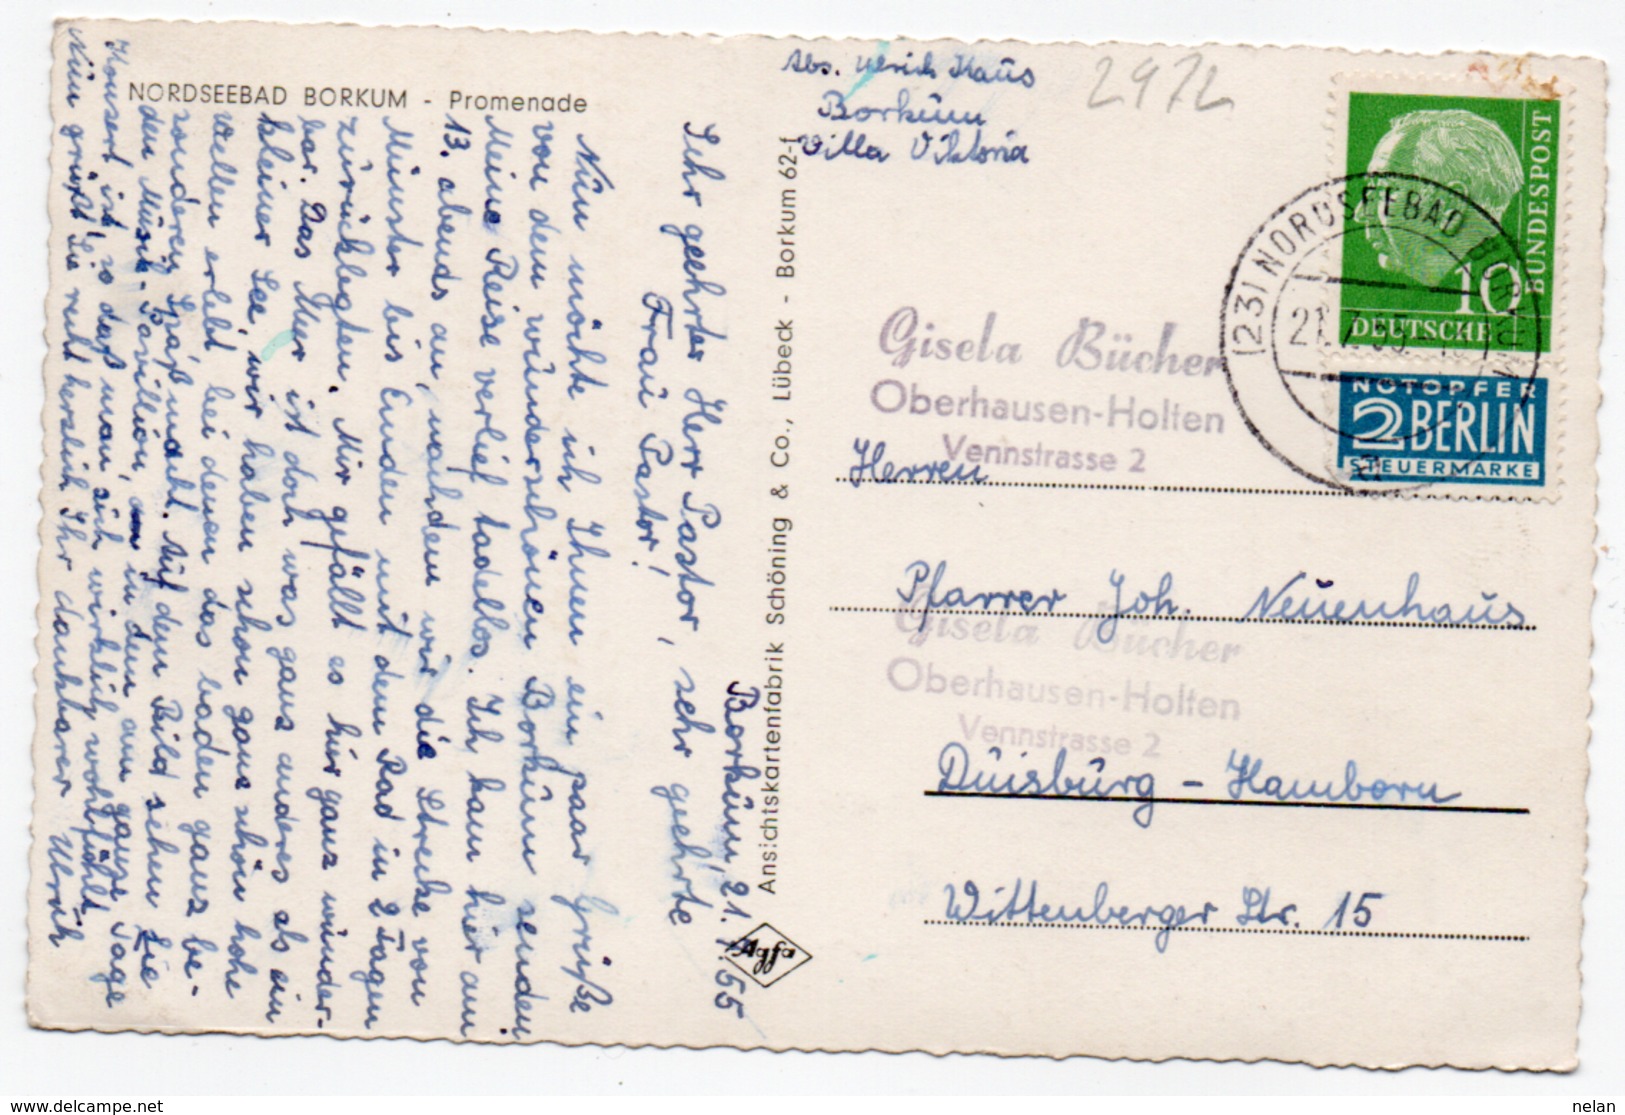 NORDSEEBAD BORKUM - Promenade
Borkum, 21.7.55
Sehr geehrter Herr Pastor, sehr geehrte
Frau Pastor!
Nun möchte ich Ihnen ein paar Grüße
von dem wunderschönen Borkum senden
Meine Reise verlief tadellos. Ich kam hier am
13. abends an, nachden wir die Strecke von
Münster bis Emden mit dem Rad in 2 Tagen
zurücklegten. Mir gefällt es hir ganz wunder-
bar. Das Meer ist doch was ganz anderes als ein
kleiner See, wir haben schon ganz schön hohe
Wellen erlebt bei denen das baden ganz be-
sonderen Spaß macht. Auf den Bild sehen Sie
den Musik-Pavillion, in dem am ganze Tage
Konsert ist, so daß man sich wirklich wohlfühlt
Nun grüßt Sie recht herzlich Ihr dankbarer Ulrich
Ansichtskartenfabrik Schöning & Co., Lübeck - Borkum 62-1
Agfa
Abs. Ulrich Haus
Borkum
Villa Viktoria
2972
BUNDESPOST
10
DEUTSCHE
NOTOPFER
2 BERLIN
STEUERMARKE
(23) NORDSEEBAD BORKUM
21.7.55
a
Gisela Bücher
Oberhausen-Holten
Vennstrasse 2
Herren
Pfarrer Joh. Neuenhaus
Gisela Bücher
Oberhausen-Holten
Vennstrasse 2
Duisburg - Hamborn
Wittenberger Str. 15
www.delcampe.net
nelan